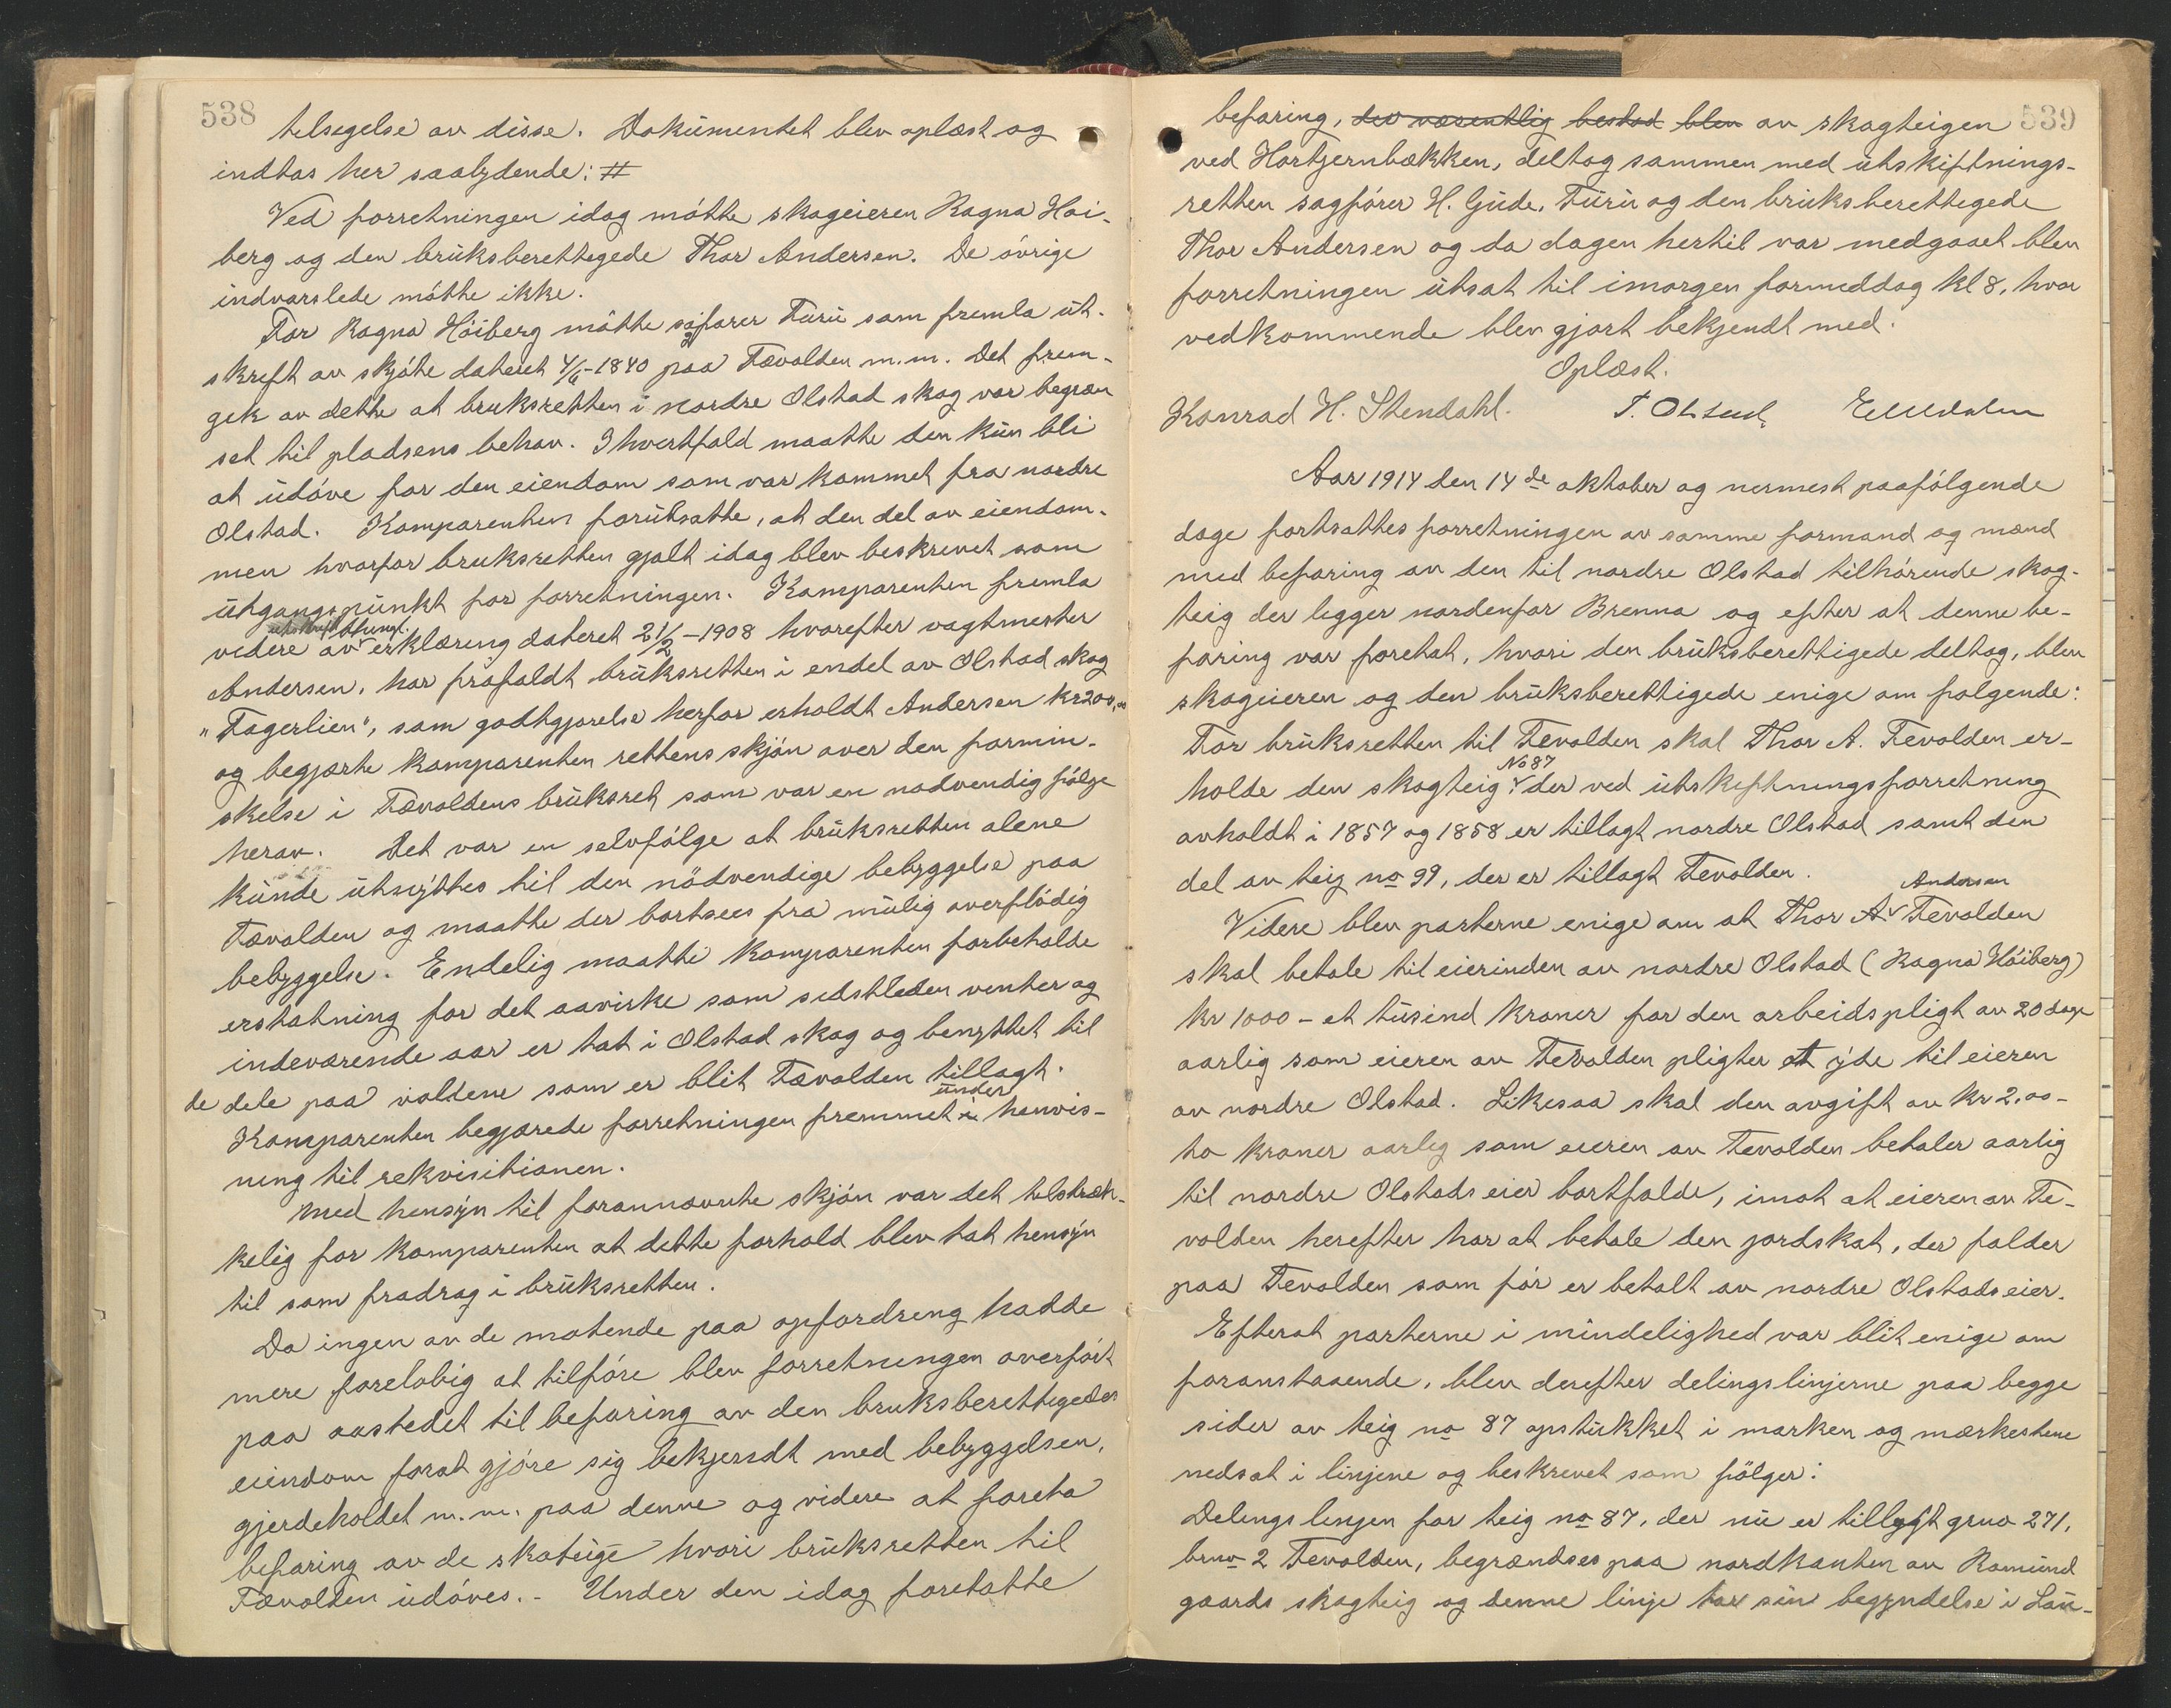 538
telsegelse av disse. Dokumentet blev oplæst og
indtas her saalydende: #
Ved forretningen idag møtte skogeieren Ragna Høi-
berg og den bruksberettegede Thor Andersen. De øvrige
indvarslede møtte ikke.
For Ragna Høiberg møtte sagfører Furu som fremla ut-
skreft av skjøte dateret 4/6-1840 paa Fævolden m.m. Det frem-
gek av dette at bruksretten i nordre Olstad skog var begræn
set til pladsens behov. I hvertfald maatte den kun bli
at udøve for den eiendom som var kommet fra nordre
Olstad. Komparenten forutsatte, at den del av eiendom-
men hvorfor bruksretten gjalt idag blev beskrevet som
utgangspunkt for forretningen. Komparenten fremla
videre av erklæring dateret 21/2-1908 hvorefter vagtmester
Andersen, har frafaldt bruksretten i endel av Olstad skog
"Fagerlien", som godtgjørelse herfor erholdt Andersen kr 200,00
og begjærte komparenten rettens skjøn over den formin-
skelse i Fævoldens bruksret som var en nødvendig følge
herav. Det var en selvfølge at bruksretten alene
kunde utnyttes til den nødvendige bebyggelse paa
Fævolden og maatte der bortsees fra mulig overflødig
bebyggelse. Endelig maatte komparenten forbeholde
erstatning for det aavirke som sidstleden venter og
indeværende aar er tat i Olstad skog og benyttet til
de dele paa voldene som er blit Fævolden tillagt.
under
Komparenten begjærede forretningen fremmet i henvis-
ning til rekvisitionen.
Med hensyn til forannævnte skjøn var det tilstræk-
kelig for komparenten at dette forhold blev tat hensyn
til som fradrag i bruksretten.
Da ingen av de møtende paa opfordreng hadde
mere foreløbig at tilføre blev forretningen overført
paa aastedet til befaring av den bruksberettegedes
eiendom forat gjøre sig bekjendt med bebyggelsen,
gjerdeholdet m.m. paa denne og videre at foreta
befaring av de skoteige hvori bruksretten til
Fævolden udøves.- Under den idag foretatte
539
befaring, der væsentlig bestod blev av skogteigen
ved Hortjernbækken, deltog sammen med utskiftnings-
retten sagfører H. Gude. Furu og den bruksberettegede
Thor Andersen og da dagen hertil var medgaaet blev
forretningen utsat til imorgen formeddag kl 8, hvor
vedkommende blev gjort bekjendt med.
Oplæst.
Konrad H. Stendahl.
Aar 1914 den 14de oktober og nermest paafølgende
dage fortsattes forretningen av samme formand og mænd
med befaring av den til nordre Olstad tilhørende skog-
teig der legger nordenfor Brenna og efter at denne be-
faring var foretat, hvori den bruksberettigede deltog, blev
skogeieren og den bruksberettigede enige om følgende:
For bruksretten til Fevolden skal Thor A. Fevolden er-
No 87
holde den skogteig der ved utskeftningsforretning
avholdt i 1857 og 1858 er tillagt nordre Olstad samt den
del av teig no 99, der er tillagt Fevolden.
Andersen
Videre blev parterne enige om at Thor A Fevolden
skal betale til eierinden av nordre Olstad (Ragna Høiberg)
kr 1000 - et tusind kroner for den arbeidspligt av 20 dage
aarlig som eieren av Fevolden pligter at yde til eieren
av nordre Olstad. Likesaa skal den avgift av kr 2.00 -
to kroner aarleg som eieren av Fevolden betaler aarlig
til nordre Olstads eier bortfalde, imot at eieren av Fe-
volden herefter har at betale den jordskat, der falder
paa Fevolden som før er betalt av nordre Olstads eier.
Efterat parterne i mindelighed var blit enige om
foranstaaende, blev derefter delingslinjerne paa begge
sider av teig no 87 opstukket i marken og mærkestene
nedsat i linjene og beskrevet som følger:
Delengslenjen for teig no 87, der nu er tillagt gno 271,
brno 2 Fevolden, begrændses paa nordkanten av Romund
gaards skogteig og denne linje har sin begyndelse i Lau-